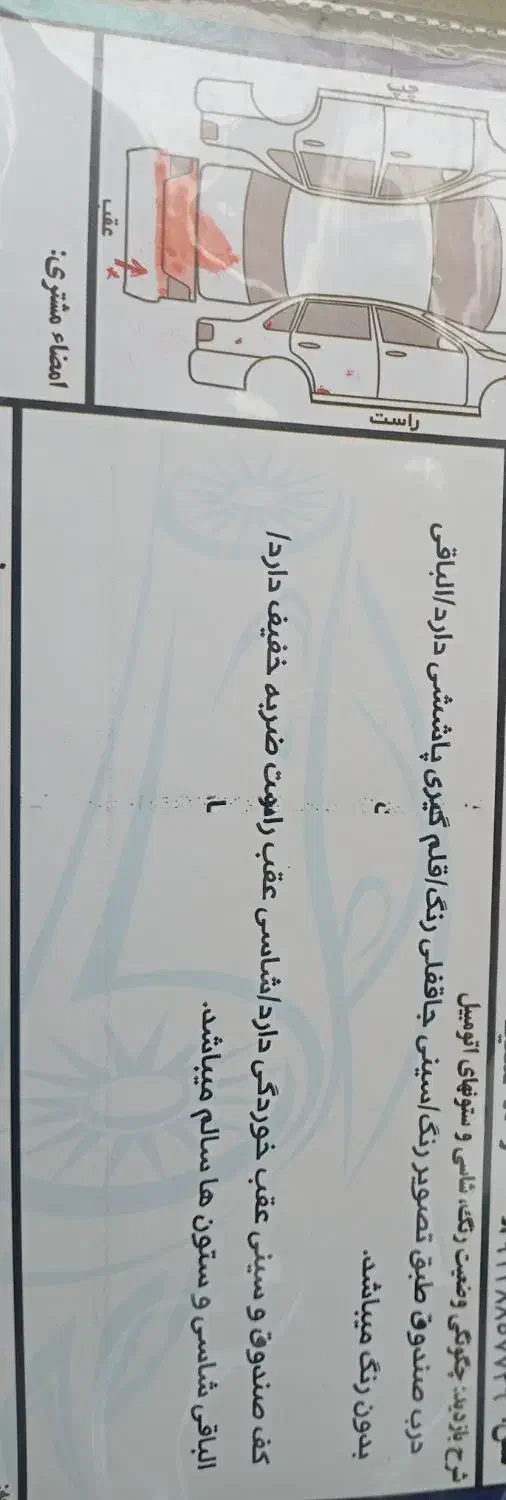 شرح بازدید: چگونگی وضعیت رنگ، شاسی و ستونهای اتومبیل
درب صندوق طبق تصویر رنگ/سینی جاقفلی رنگ/قلم گیری پاششی دارد/الباقی
بدون رنگ میباشد.
کف صندوق و سینی عقب خوردگی دارد/شاسی عقب راست ضربه خفیف دارد/
الباقی شاسی و ستون ها سالم میباشد.
راست
عقب
امضاء مشتری: